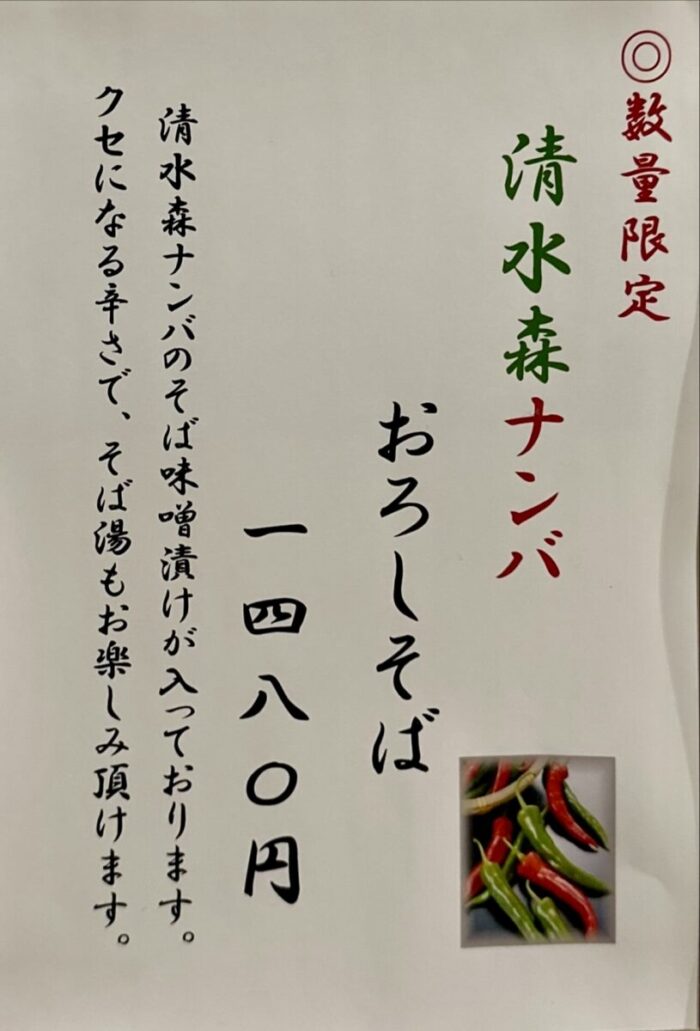 ◎数量限定
清水森ナンバ
おろしそば
一四八〇円
清水森ナンバのそば味噌漬けが入っております。
クセになる辛さで、そば湯もお楽しみ頂けます。